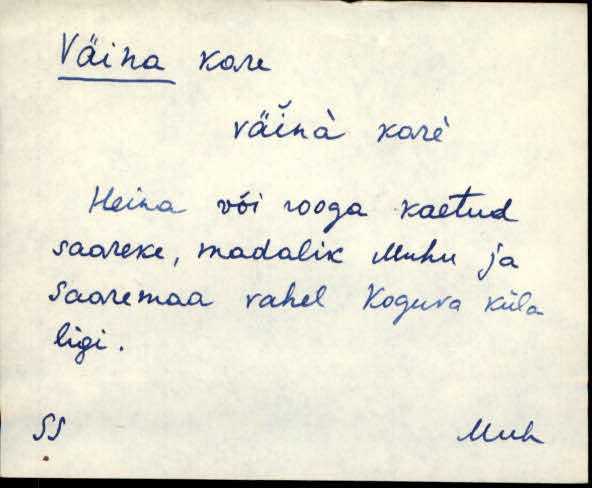 Väina kare
väĭnà karè
Heina või rooga kaetud
saareke, madalik Muhu ja
Saaremaa vahel Koguva küla
ligi.
SS Muh